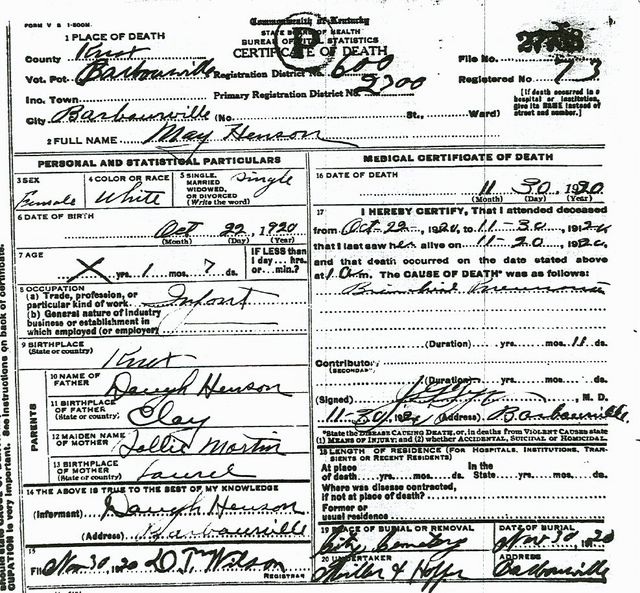 FORM V S 1-500M
Commonwealth of Kentucky
STATE BOARD OF HEALTH
BUREAU OF VITAL STATISTICS
CERTIFICATE OF DEATH
1 PLACE OF DEATH
County Knox
Vot. Pct. Barbourville Registration District No. 600
File No.
Ino. Town Primary Registration District No. 2700
Registered No 73
City Barbourville (No. St., Ward)
[If death occurred in a hospital or institution, give its NAME instead of street and number.]
2 FULL NAME May Henson
PERSONAL AND STATISTICAL PARTICULARS
3 SEX Female
4 COLOR OR RACE White
5 SINGLE, MARRIED WIDOWED, OR DIVORCED (Write the word) Single
6 DATE OF BIRTH
Oct 22, 1920
(Month) (Day) (Year)
7 AGE
X yrs. 1 mos. 7 ds.
IF LESS than 1 day... hrs. or... min.?
8 OCCUPATION
(a) Trade, profession, or particular kind of work Infant
(b) General nature of industry business or establishment in which employed (or employer)
9 BIRTHPLACE
(State or country) Knox
PARENTS
10 NAME OF FATHER Henson
11 BIRTHPLACE OF FATHER (State or country) Clay
12 MAIDEN NAME OF MOTHER Martin
13 BIRTHPLACE OF MOTHER (State or country) Laurel
14 THE ABOVE IS TRUE TO THE BEST OF MY KNOWLEDGE
(Informant) Henson
(Address) Barbourville
15
Filed Nov 30, 1920 D T Wilson
REGISTRAR
MEDICAL CERTIFICATE OF DEATH
16 DATE OF DEATH
11 30 1920
(Month) (Day) (Year)
17 I HEREBY CERTIFY, That I attended deceased
from Oct-22-, 192, to 11-30, 192
that I last saw her alive on 11-20 1920,
and that death occurred on the date stated above
at m. The CAUSE OF DEATH* was as follows:
(Duration) yrs. mos. ds.
Contributory
(SECONDARY)
(Duration) yrs. mos. ds.
(Signed) M. D.
11-30, 192 (Address) Barbourville
*State the DISEASE CAUSING DEATH, or, in deaths from VIOLENT CAUSES state
(1) MEANS OF INJURY; and (2) whether ACCIDENTAL, SUICIDAL OR HOMICIDAL.
18 LENGTH OF RESIDENCE (FOR HOSPITALS, INSTITUTIONS, TRANSIENTS OR RECENT RESIDENTS)
At place of death yrs. mos. ds. In the State yrs. mos. ds.
Where was disease contracted, if not at place of death?
Former or usual residence
19 PLACE OF BURIAL OR REMOVAL City Cemetery
DATE OF BURIAL Nov 30, 1920
20 UNDERTAKER Miller &
ADDRESS Barbourville
See instructions on back of certificate.
CUPATION is very important.